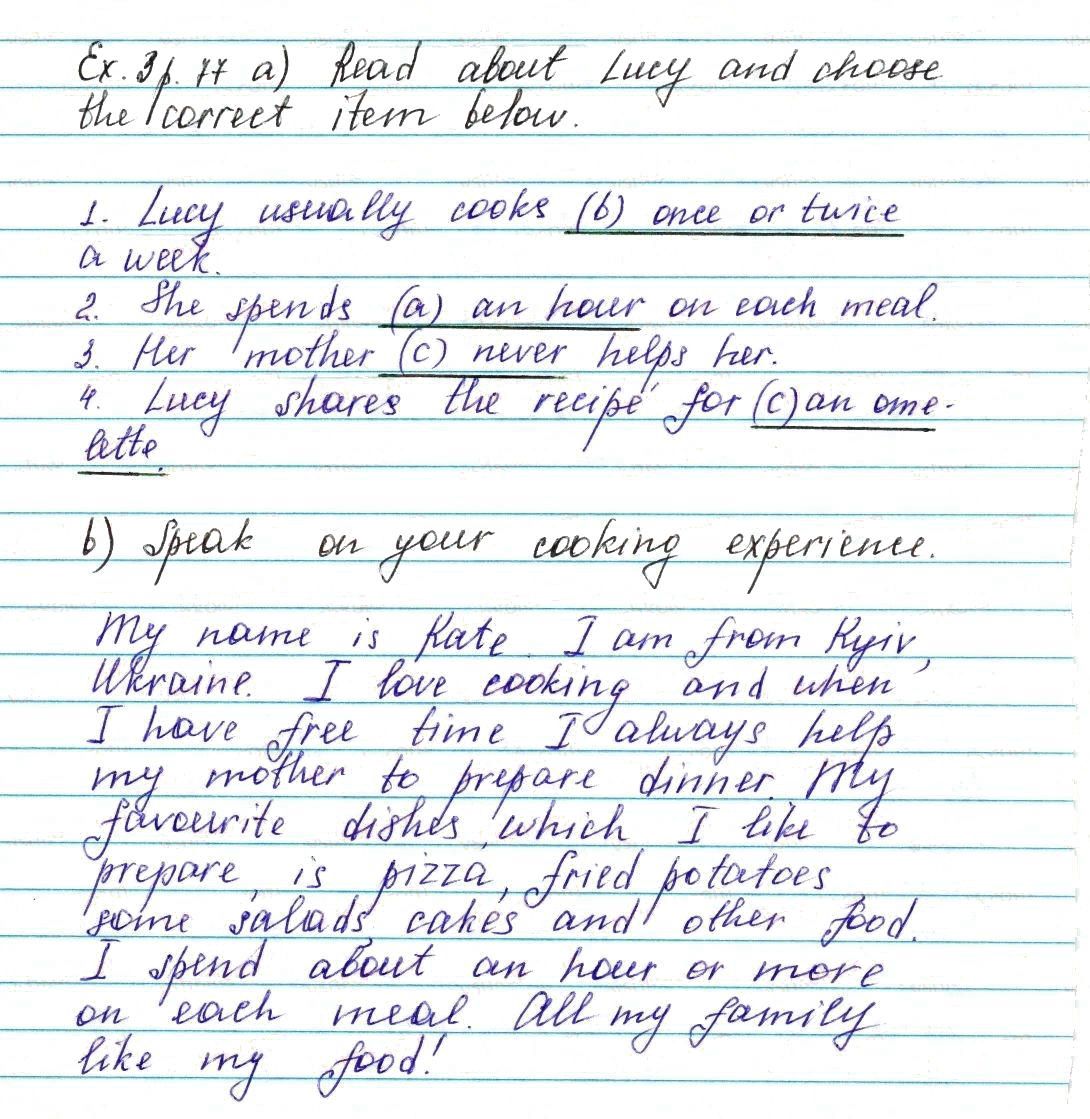 Ex. 3 p. 77 a) Read about Lucy and choose
the correct item below.
1. Lucy usually cooks (b) once or twice
a week.
2. She spends (a) an hour on each meal.
3. Her mother (c) never helps her.
4. Lucy shares the recipe for (c) an ome-
lette.
b) Speak on your cooking experience.
My name is Kate. I am from Kyiv,
Ukraine. I love cooking and when
I have free time I always help
my mother to prepare dinner. My
favourite dishes, which I like to
prepare, is pizza, fried potatoes,
some salads, cakes and other food.
I spend about an hour or more
on each meal. All my family
like my food!